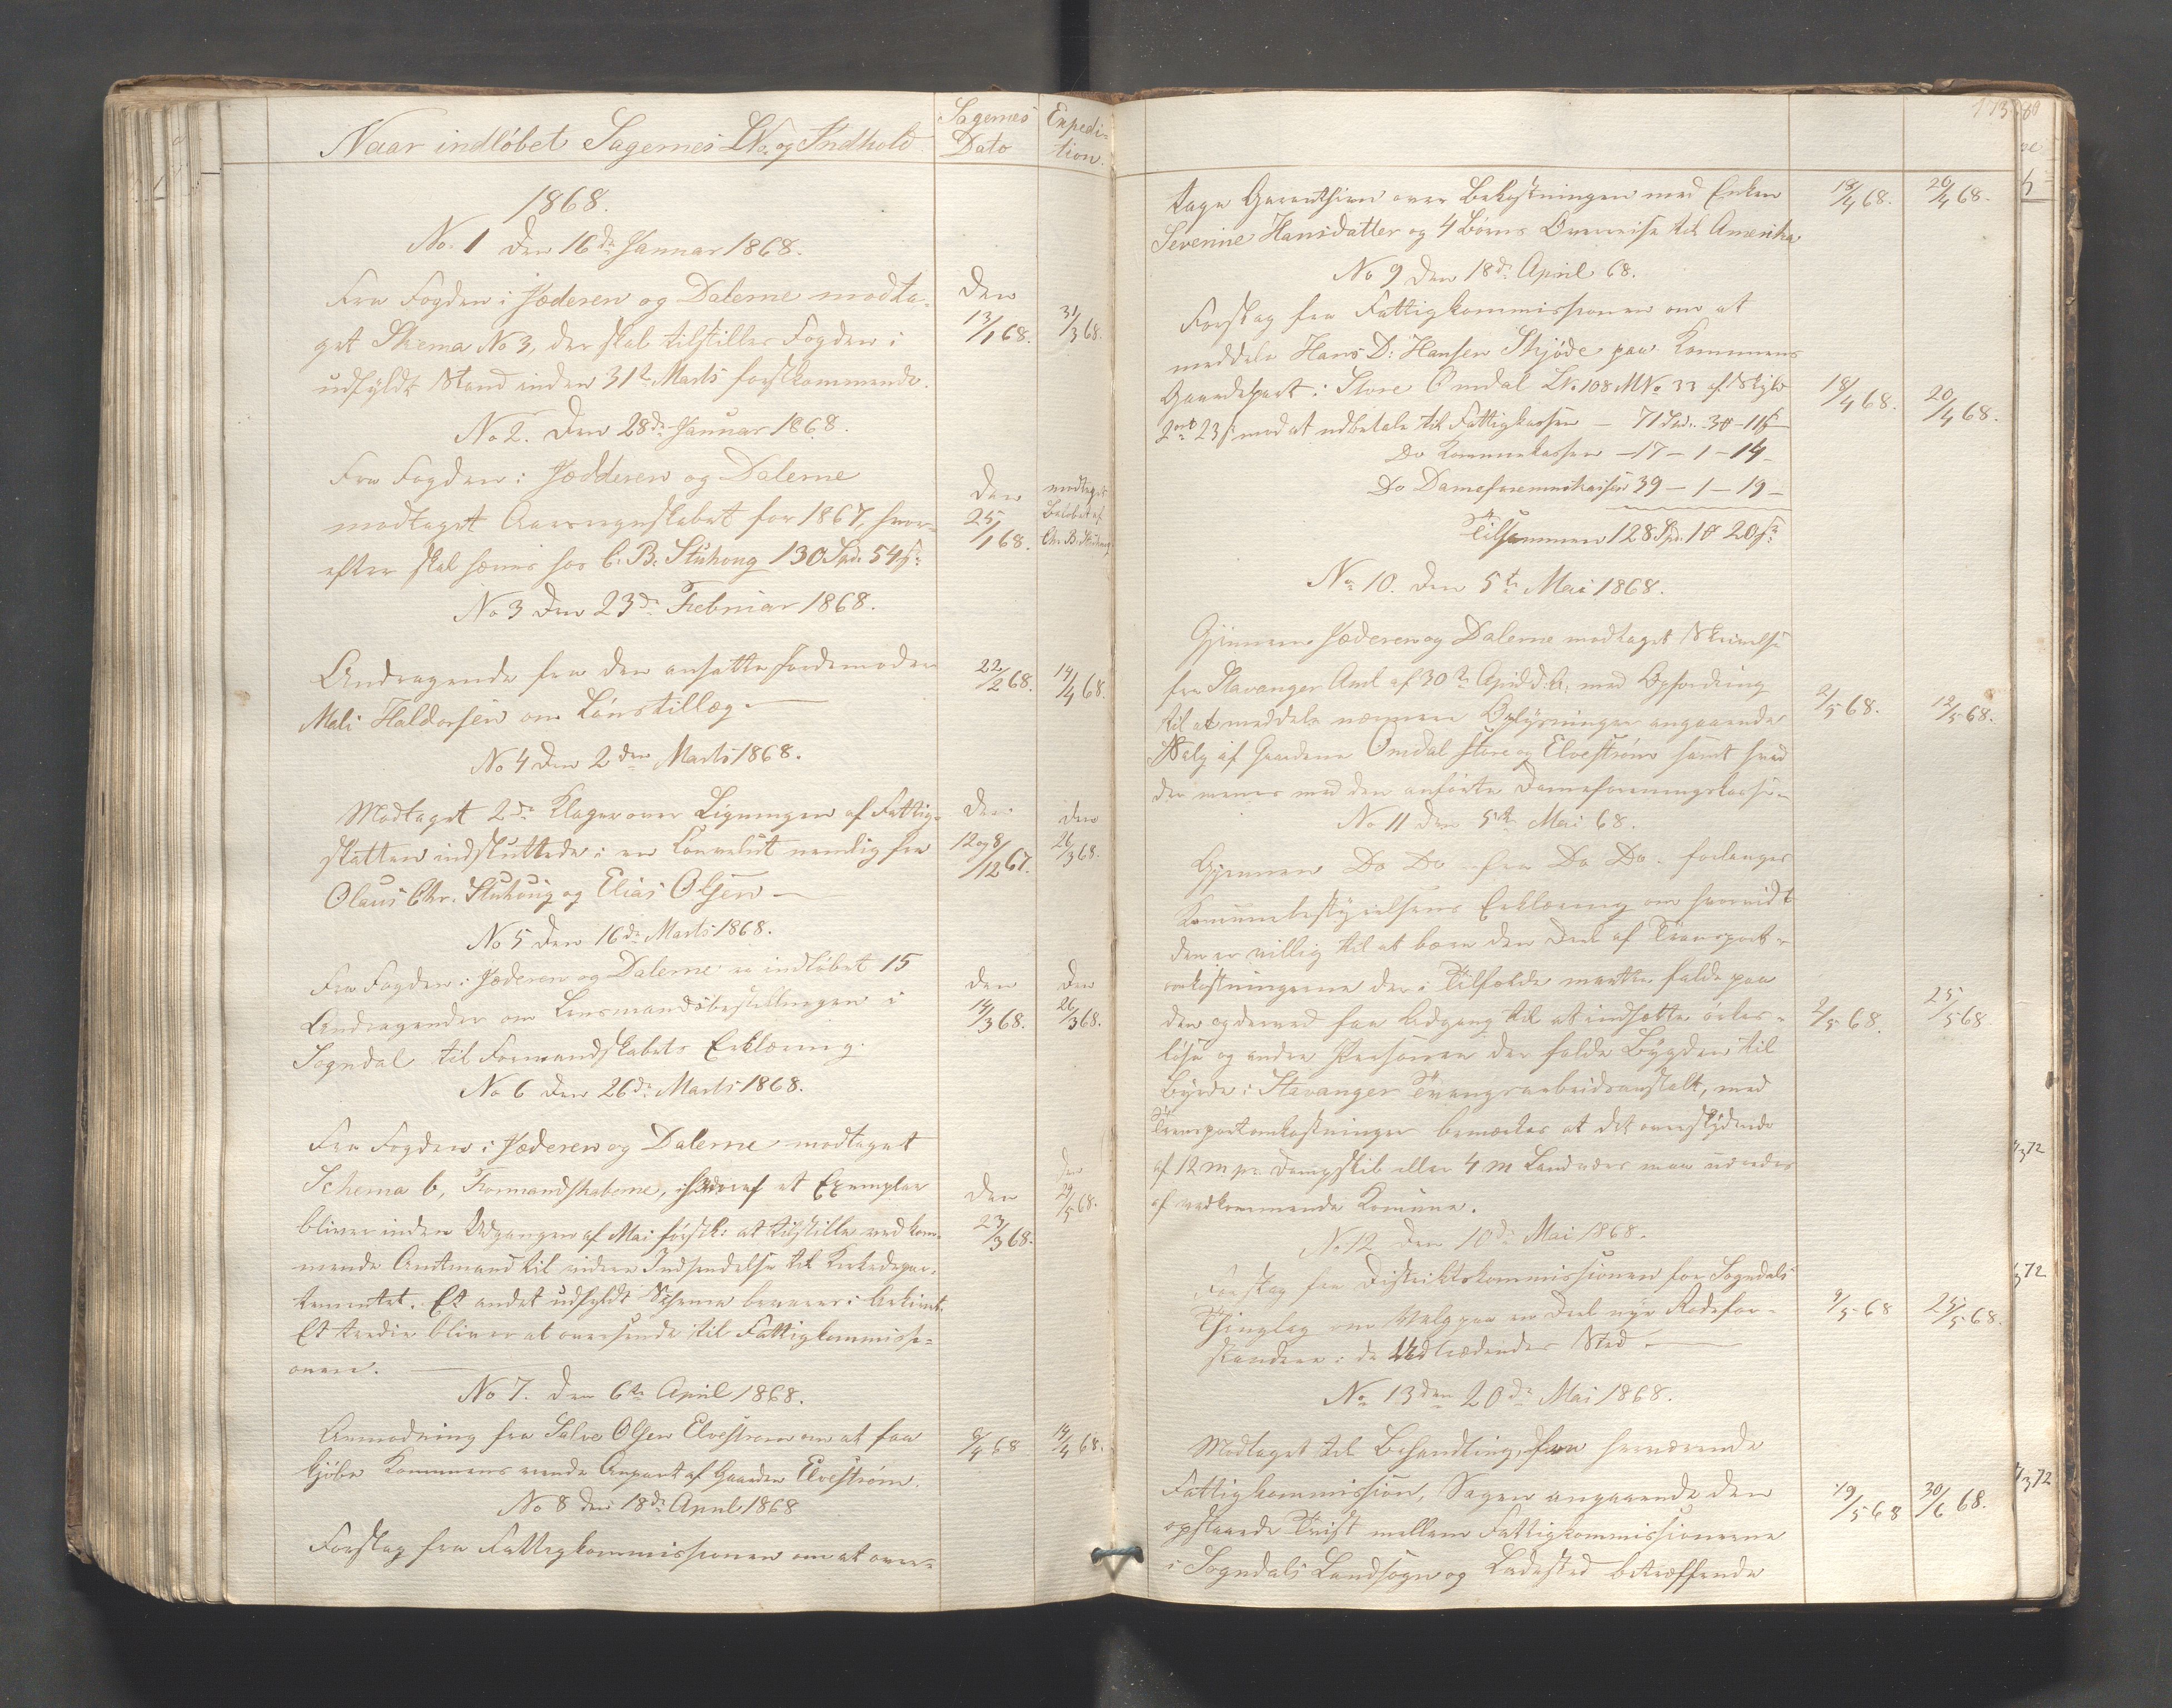 Naar indløbet Sagernes LNo. og Indhold
Sagernes Dato
Expedi-
tion.
1868.
No. 1 den 16de Januar 1868.
Fra Fogden i Jæderen og Dalerne modta-
get Skema No 3, der skal tilstilles Fogden i
udfyldt Stand inden 31te Marts førstkommende.
Den
13/1 68.
31/3 68.
No 2. Den 28de Januar 1868.
Fra Fogden i Jædderen og Dalerne
modtaget Aarsregnskabet for 1867, hvor-
efter skal hæves hos C. B. Stuhoug 130 Spd. 54 s.
Den
25/1 68.
modtaget
Beløbet af
Chr. B. Stuhoug
No 3 Den 23de Februar 1868.
Andragende fra den ansatte Jordemoder
Mali Haldorsen om Lønstillæg.
22/2 68.
14/4 68.
No 4 den 2den Marts 1868.
Modtaget 2de Klager over Ligningen af Fattig-
skatten indsluttede i en Konvolut nemlig fra
Olaus Chr. Stuhoug og Elias Olsen
Den
12 og 8/12 67.
Den
26/3 68.
No 5 den 16de Marts 1868.
Fra Fogden i Jæderen og Dalerne er indløbet 15
Andragender om Lensmandsbestillingen i
Sogndal til Formandskabets Erklæring.
Den
14/3 68.
Den
26/3 68.
No 6 den 26de Marts 1868.
Fra Fogden i Jæderen og Dalerne modtaget
Schema 6, Formandskaberne, hvoraf et Exemplar
bliver inden Udgangen af Mai førstk: at tilstille vedkom-
mende Amtmand til videre Indsendelse til Kirkedepar-
tementet. Et andet udfyldt Schema bevares i Arkivet.
Et tredie bliver at oversende til Fattigkommissi-
onen.
Den
23/3 68.
Den
29/5 68.
No 7. den 6te April 1868.
Anmodning fra Salve Olsen Elvestrøm om at faa
kjøbe Kommunens eiende Anpart af Gaarden Elvestrøm.
6/4 68
14/4 68.
No 8 den 18de April 1868
Forslag fra Fattigkommissionen om at over-
173
tage Garanthien over Bekostningen med Enken
Severine Hansdatter og 4 Børns Overreise til Amerika
18/4 68.
20/4 68.
No 9 den 18de April 68.
Forslag fra Fattigkommissionen om at
meddele Hans D: Hansen Skjøde paa Kommunens
Gaardepart i Store Omdal LNo. 108 MNo 33 af Skyld
2 ort 23 s mod at udbetale til Fattigkassen – 71 Spd. 3 – 11 s
Do Kommunekassen – 17 – 1 – 14 –
Do Dameforeninskassen 39 – 1 – 19 –
Tilsammen 128 Spd. 1 20 s.
18/4 68.
20/4 68.
No 10. den 5te Mai 1868.
Gjennem Jæderen og Dalerne modtaget Skrivelse
fra Stavanger Amt af 30te April d. A. med Opfordring
til at meddele nærmere Oplysninger angaaende
Salg af Gaardene Omdal store og Elvestrøm samt hvad
der menes med den anførte Dameforeningskasse.
2/5 68.
12/5 68.
No 11 den 5te Mai 68.
Gjennem Do Do fra Do Do forlanges
Kommunebestyrelsens Erklæring om hvorvidt
den er villig til at bære den Deel af Transport-
omkostningerne der i Tilfælde maatte falde paa
den og derved faa Adgang til at indsætte örkes-
løse og andre Personer der falde Bygden til
Byrde i Stavanger Tvangsarbeidsanstalt, med
Transportomkostninger bemærkes at det overskydende
af 12 m pr. Dampskib eller 4 m Landvei maa udredes
af vedkommende Komune.
2/5 68.
25/5 68
No 12 den 10de Mai 1868.
Forslag fra Distriktskommissionen for Sogndals
Thinglag om Valg paa en Deel nye Rodefor-
standere i de Udtrædendes Sted
9/5 68
25/5 68.
No 13 den 20de Mai 1868.
Modtaget til Behandling, fra herværende
Fattigkommission, Sagen angaaende den
opstaaede Tvist mellem Fattigkommissionerne
i Sogndals Landsogn og Ladested betræffende
19/5 68
30/6 68.